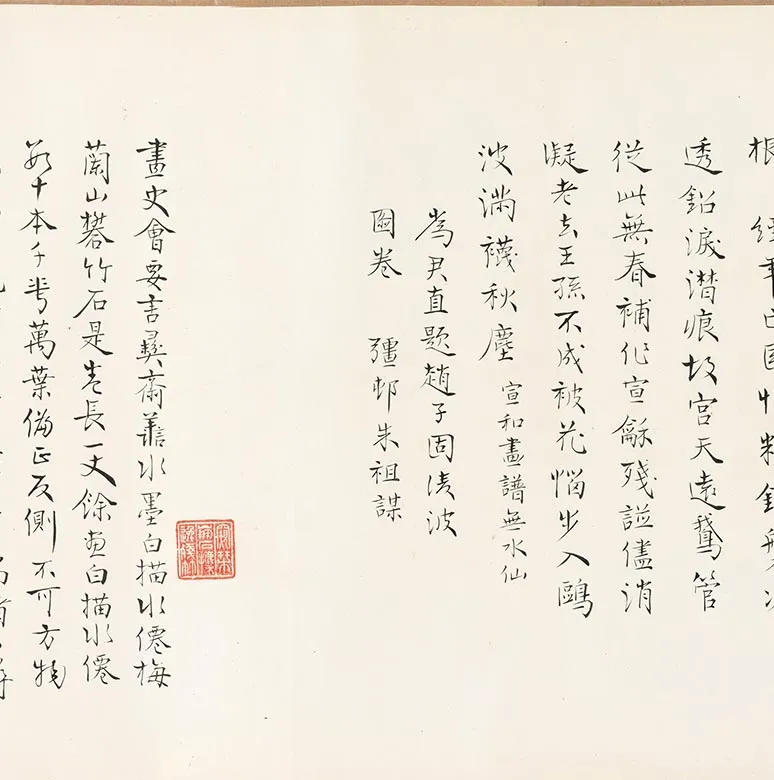 根 經年亡國
透鉛淚潛痕故宮天遠鵝管
從此無春補作宣龢殘譜儘消
凝老去王孫不成被花惱步入鷗
波滿襪秋塵 宣和畫譜無水仙
為君直題趙子固淩波
圖卷 彊邨朱祖謀
畫史會要言彝齋善水墨白描水僊梅
蘭山礬竹石是卷長一丈餘畫白描水僊
數十本千華萬葉偏正反側不可方物